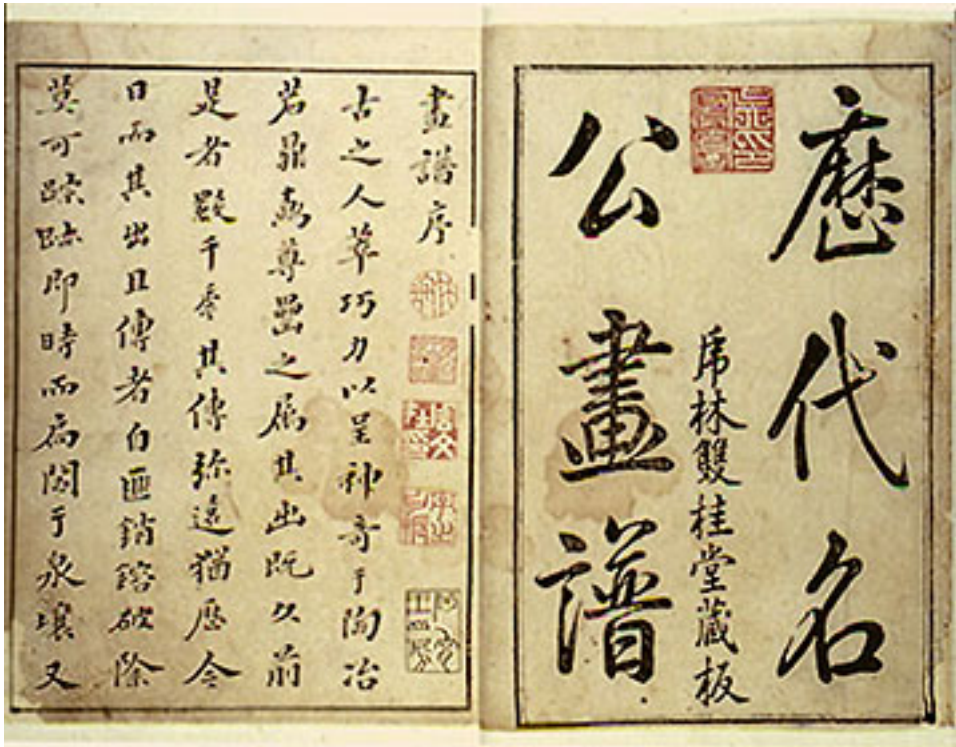 歷代名
公畫譜
虎林雙桂堂藏板
畫譜序
古之人萃巧力以呈神奇于陶冶
若鼎彝尊罍之属其出既久前
是者千季其傳弥遠猶歷今
日而其出且傳者自匪銷鎔破除
莫可踪跡即時而扃閟于泉壤又